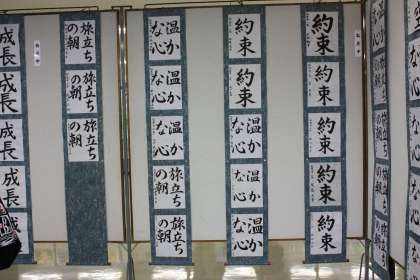 約束
約束
約束
約束
約束
約束
約束
温か
な心
温か
な心
温か
な心
温か
な心
温か
な心
温か
な心
旅立ち
の朝
旅立ち
の朝
旅立ち
の朝
旅立ち
の朝
旅立ち
の朝
成長
成長
成長
成長
成長